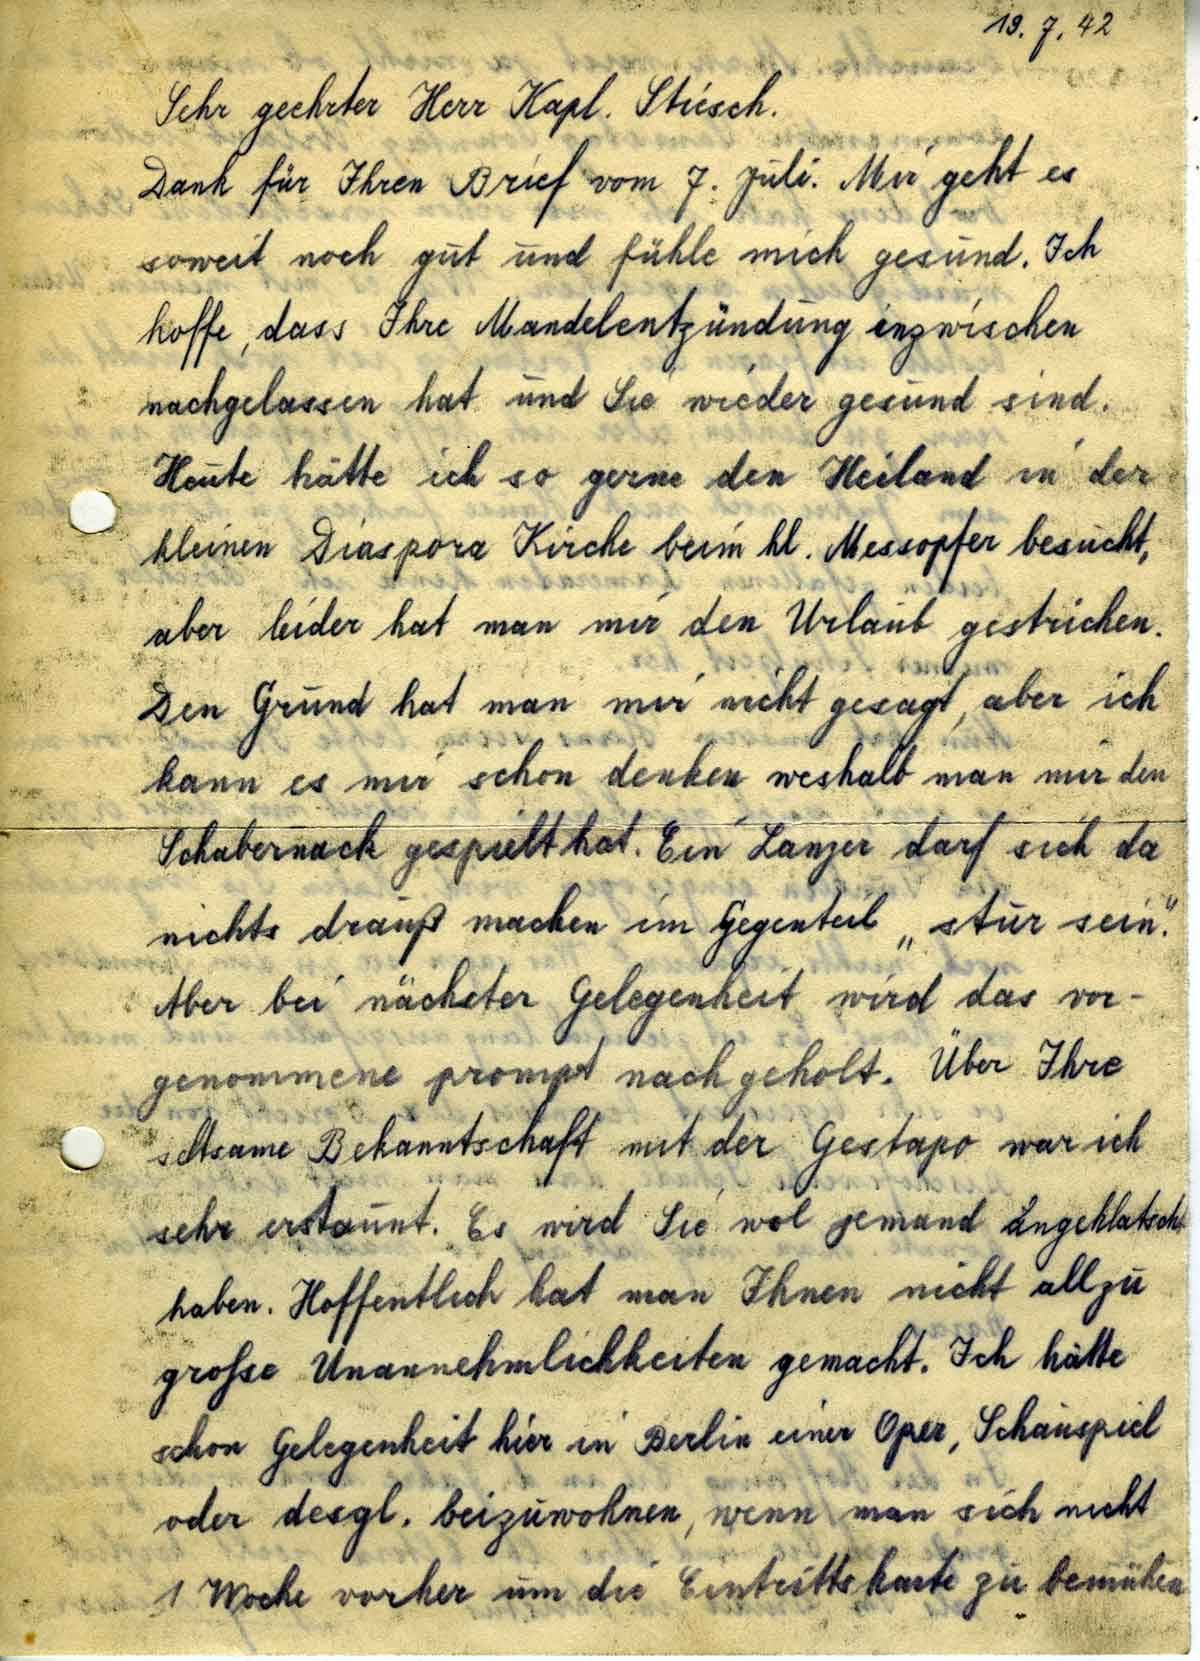 19. 7. 42
Sehr geehrter Herr Kapl. Stiesch.
Dank für Ihren Brief vom 7. Juli. Mir geht es
soweit noch gut und fühle mich gesund. Ich
hoffe, dass Ihre Mandelentzündung inzwischen
nachgelassen hat und Sie wieder gesund sind.
Heute hätte ich so gerne den Heiland in der
kleinen Diaspora Kirche beim hl. Messopfer besucht,
aber leider hat man mir den Urlaub gestrichen.
Den Grund hat man mir nicht gesagt, aber ich
kann es mir schon denken weshalb man mir den
Schabernack gespielt hat. Ein Lanzer darf sich da
nichts drauß machen im Gegenteil „stur sein".
Aber bei nächster Gelegenheit wird das vor-
genommene prompt nachgeholt. Über Ihre
seltsame Bekanntschaft mit der Gestapo war ich
sehr erstaunt. Es wird Sie wol jemand angeklatscht
haben. Hoffentlich hat man Ihnen nicht allzu
große Unannehmlichkeiten gemacht. Ich hätte
schon Gelegenheit hier in Berlin einer Oper, Schauspiel
oder desgl. beizuwohnen, wenn man sich nicht
1 Woche vorher um die Eintrittskarte zu bemühen